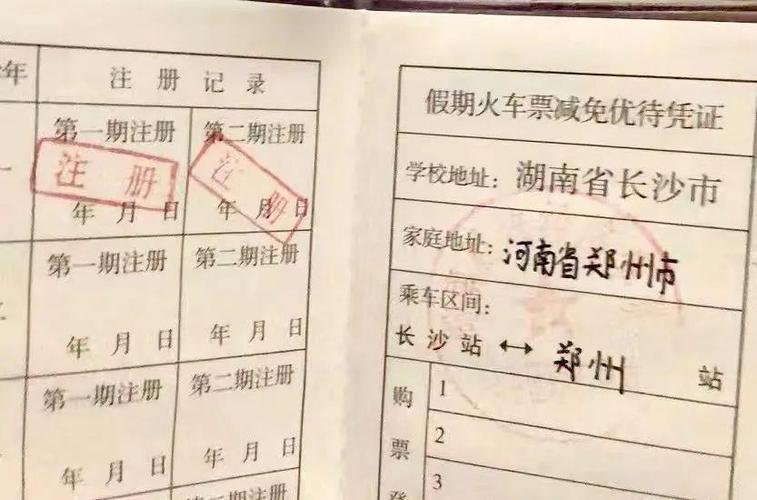 年
注 册 记 录
第一期注册 第二期注册
注 册 注 册
年 月 日 年 月 日
第一期注册 第二期注册
年 月 日 年 月 日
第一期注册 第二期注册
年 月 日 年 月 日
假期火车票减免优待凭证
学校地址：湖南省长沙市
家庭地址：河南省郑州市
乘车区间：
长沙站 ↔ 郑州 站
购
票
1
2
3